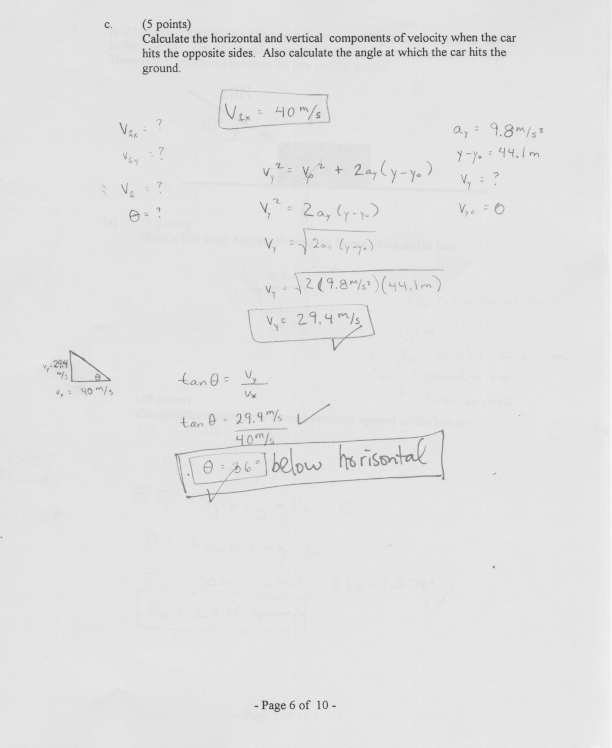 c. (5 points)
Calculate the horizontal and vertical components of velocity when the car
hits the opposite sides. Also calculate the angle at which the car hits the
ground.
Vfx = 40 m/s
Vfx = ?
Vfy = ?
Vf = ?
θ = ?
ay = 9.8 m/s²
y-y₀ = 44.1 m
Vy = ?
Vy₀ = 0
Vy² = V₀² + 2ay(y-y₀)
Vy² = 2ay(y-y₀)
Vy = √2ay(y-y₀)
Vy = √2(9.8m/s²)(44.1m)
Vy = 29.4 m/s
Vy=29.4
m/s
θ
Vx = 40 m/s
tanθ = Vy/Vx
tan θ = 29.4 m/s / 40 m/s
θ = 36° below horisontal
- Page 6 of 10 -